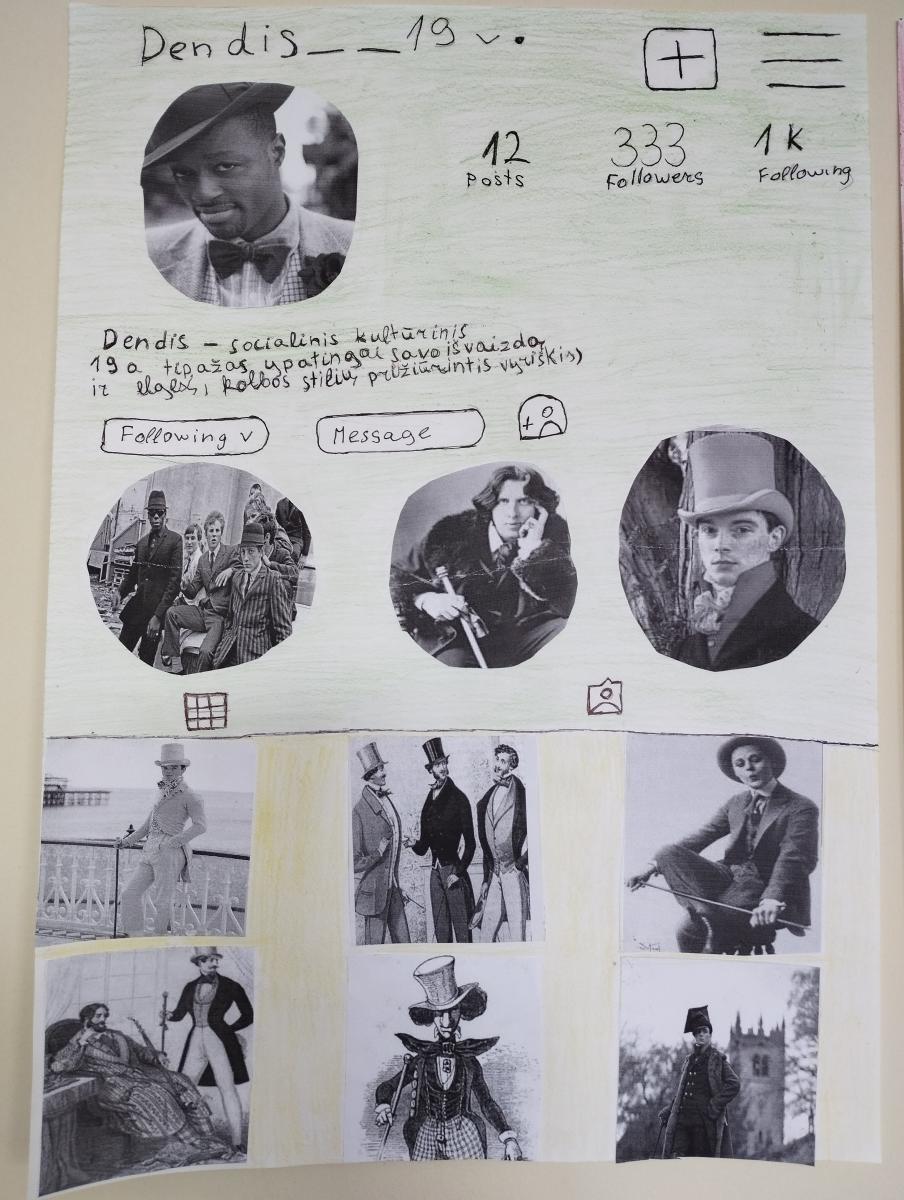 Dendis__19 v.
12
Posts
333
Followers
1K
Following
Dendis – socialinis kultūrinis
19 a tipažas ypatingai savo išvaizdą,
ir elgesį, kalbos stilių prižiūrintis vyriškis)
Following v
Message